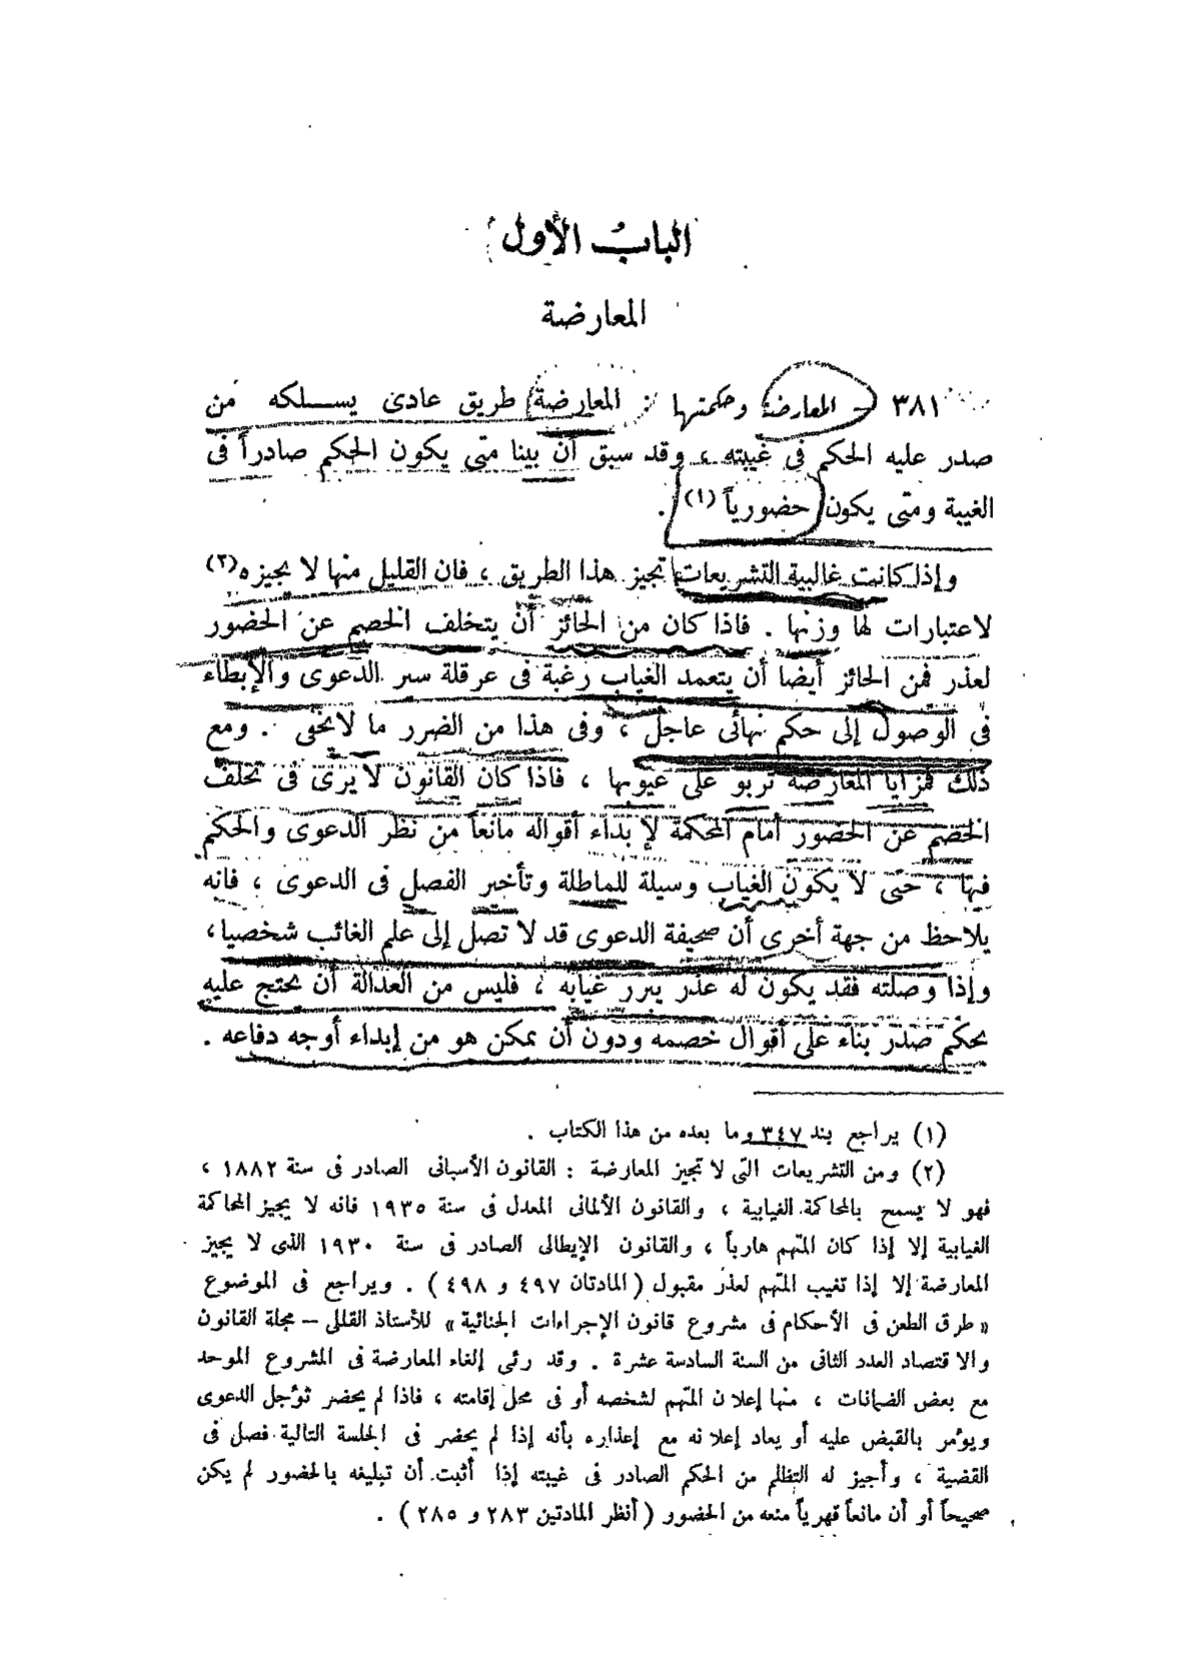 الباب الأول
المعارضة
٣٨١ – المعارضة وحكمتها : المعارضة طريق عادى يسلكه من
صدر عليه الحكم فى غيبته ، وقد سبق أن بينا متى يكون الحكم صادراً فى
الغيبة ومتى يكون حضورياً (١) .
وإذا كانت غالبية التشريعات تجيز هذا الطريق ، فان القليل منها لا يجيزه (٢)
لاعتبارات لها وزنها . فاذا كان من الجائز أن يتخلف الخصم عن الحضور
لعذر فمن الجائز أيضا أن يتعمد الغياب رغبة فى عرقلة سير الدعوى والإبطاء
فى الوصول إلى حكم نهائى عاجل ، وفى هذا من الضرر ما لا يخفى . ومع
ذلك فمزايا المعارضة تربو على عيوبها ، فاذا كان القانون لا يرى فى تخلف
الخصم عن الحضور أمام المحكمة لإبداء أقواله مانعاً من نظر الدعوى والحكم
فيها ، حتى لا يكون الغياب وسيلة للماطلة وتأخير الفصل فى الدعوى ، فانه
يلاحظ من جهة أخرى أن صحيفة الدعوى قد لا تصل إلى علم الغائب شخصيا ،
وإذا وصلته فقد يكون له عذر يبرر غيابه ، فليس من العدالة أن يحتج عليه
بحكم صدر بناء على أقوال خصمه ودون أن يمكن هو من إبداء أوجه دفاعه .
(١) يراجع بند ٣٤٧ وما بعده من هذا الكتاب .
(٢) ومن التشريعات التى لا تجيز المعارضة : القانون الأسبانى الصادر فى سنة ١٨٨٢ ،
فهو لا يسمح بالمحاكمة الغيابية ، والقانون الألمانى المعدل فى سنة ١٩٣٥ فانه لا يجيز المحاكمة
الغيابية إلا إذا كان المتهم هارباً ، والقانون الإيطالى الصادر فى سنة ١٩٣٠ الذى لا يجيز
المعارضة إلا إذا تغيب المتهم لعذر مقبول ( المادتان ٤٩٧ و ٤٩٨ ) . ويراجع فى الموضوع
« طرق الطعن فى الأحكام فى مشروع قانون الإجراءات الجنائية » للأستاذ القللى – مجلة القانون
والاقتصاد العدد الثانى من السنة السادسة عشرة . وقد رئى إلغاء المعارضة فى المشروع الموحد
مع بعض الضمانات ، منها إعلان المتهم لشخصه أو فى محل إقامته ، فاذا لم يحضر تؤجل الدعوى
ويؤمر بالقبض عليه أو يعاد إعلانه مع إعذاره بأنه إذا لم يحضر فى الجلسة التالية فصل فى
القضية ، وأجيز له التظلم من الحكم الصادر فى غيبته إذا أثبت أن تبليغه بالحضور لم يكن
صحيحاً أو أن مانعاً قهرياً منعه من الحضور ( أنظر المادتين ٢٨٣ و ٢٨٥ ) .